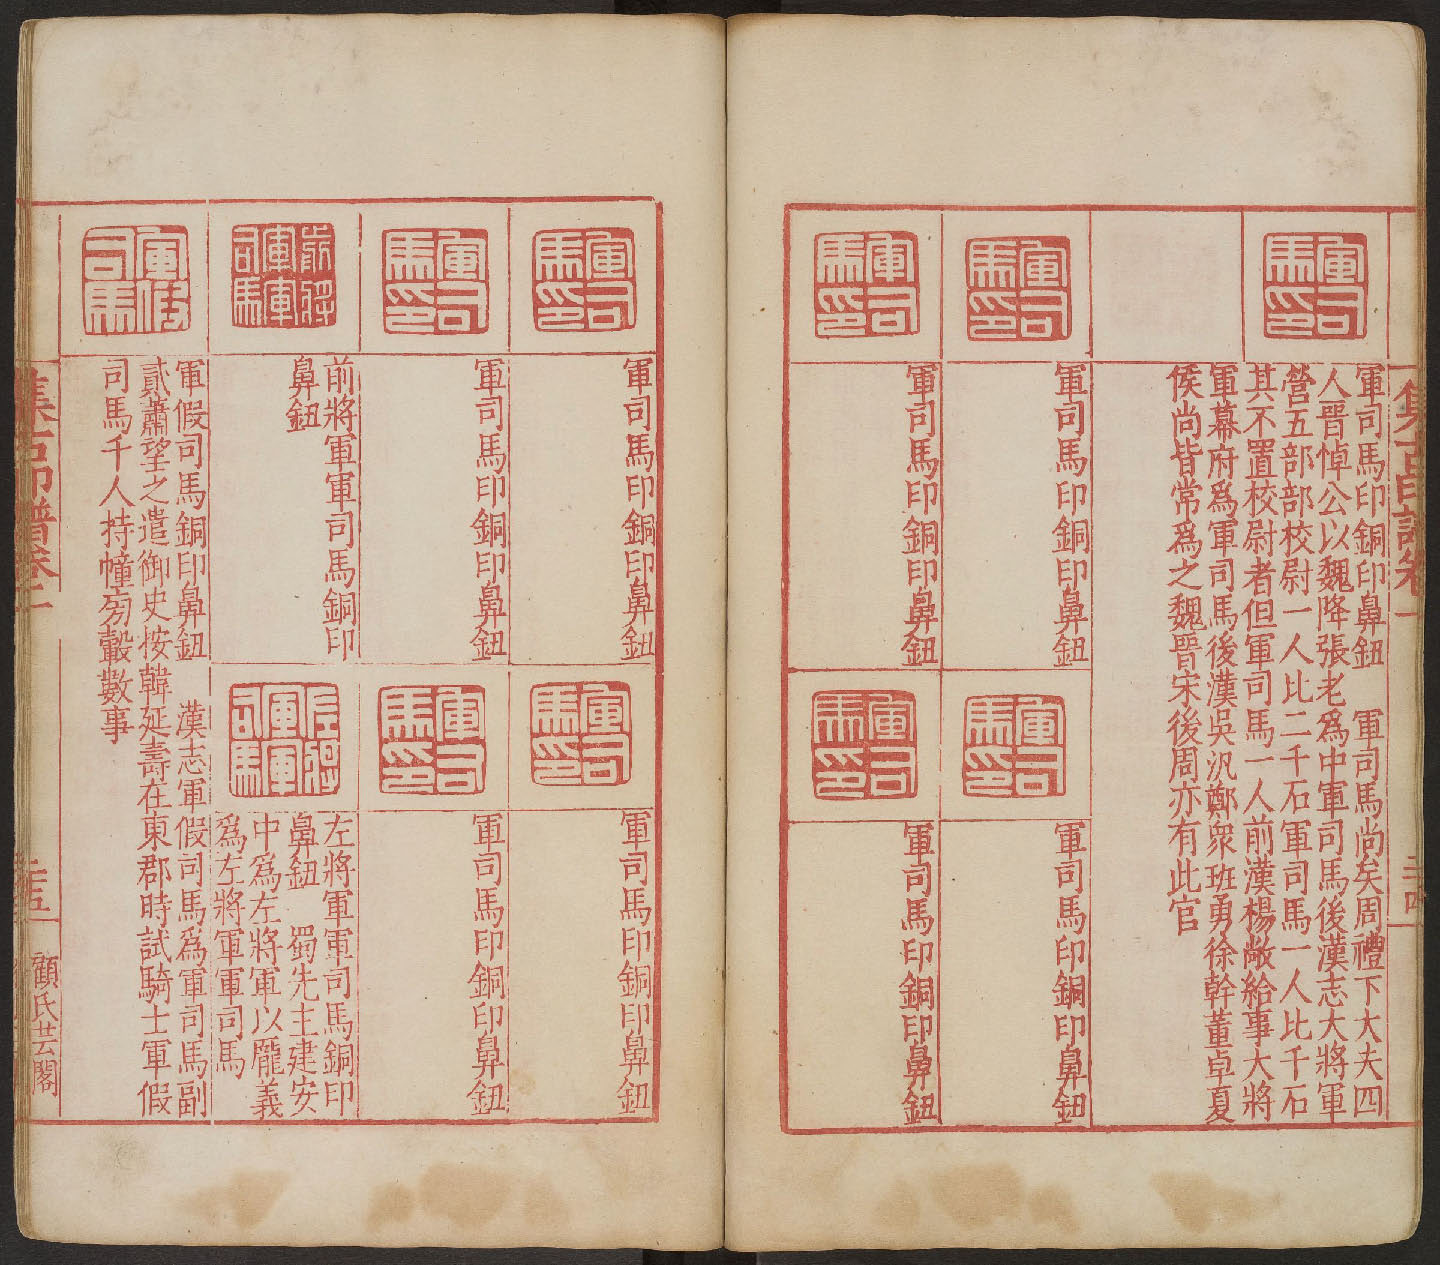 集古印譜卷一
二十四
軍司馬印
軍司馬印銅印鼻鈕　軍司馬尚矣周禮下大夫四
人晋悼公以魏降張老為中軍司馬後漢志大將軍
營五部部校尉一人比二千石軍司馬一人比千石
其不置校尉者但軍司馬一人前漢楊敞給事大將
軍幕府為軍司馬後漢吳汎鄭衆班勇徐幹董卓夏
侯尚皆常為之魏晋宋後周亦有此官
軍司馬印
軍司馬印銅印鼻鈕
軍司馬印
軍司馬印銅印鼻鈕
軍司馬印
軍司馬印銅印鼻鈕
軍司馬印
軍司馬印銅印鼻鈕
軍司馬印
軍司馬印銅印鼻鈕
軍司馬印
軍司馬印銅印鼻鈕
軍司馬印
軍司馬印銅印鼻鈕
軍司馬印
軍司馬印銅印鼻鈕
前將軍軍司馬
前將軍軍司馬銅印
鼻鈕
左將軍軍司馬
左將軍軍司馬銅印
鼻鈕　蜀先主建安
中為左將軍以龐義
為左將軍軍司馬
軍假司馬
軍假司馬銅印鼻鈕　漢志軍假司馬為軍司馬副
貳蕭望之遣御史按韓延壽在東郡時試騎士軍假
司馬千人持幢旁轂數事
集古印譜卷二
二十五
顧氏芸閣